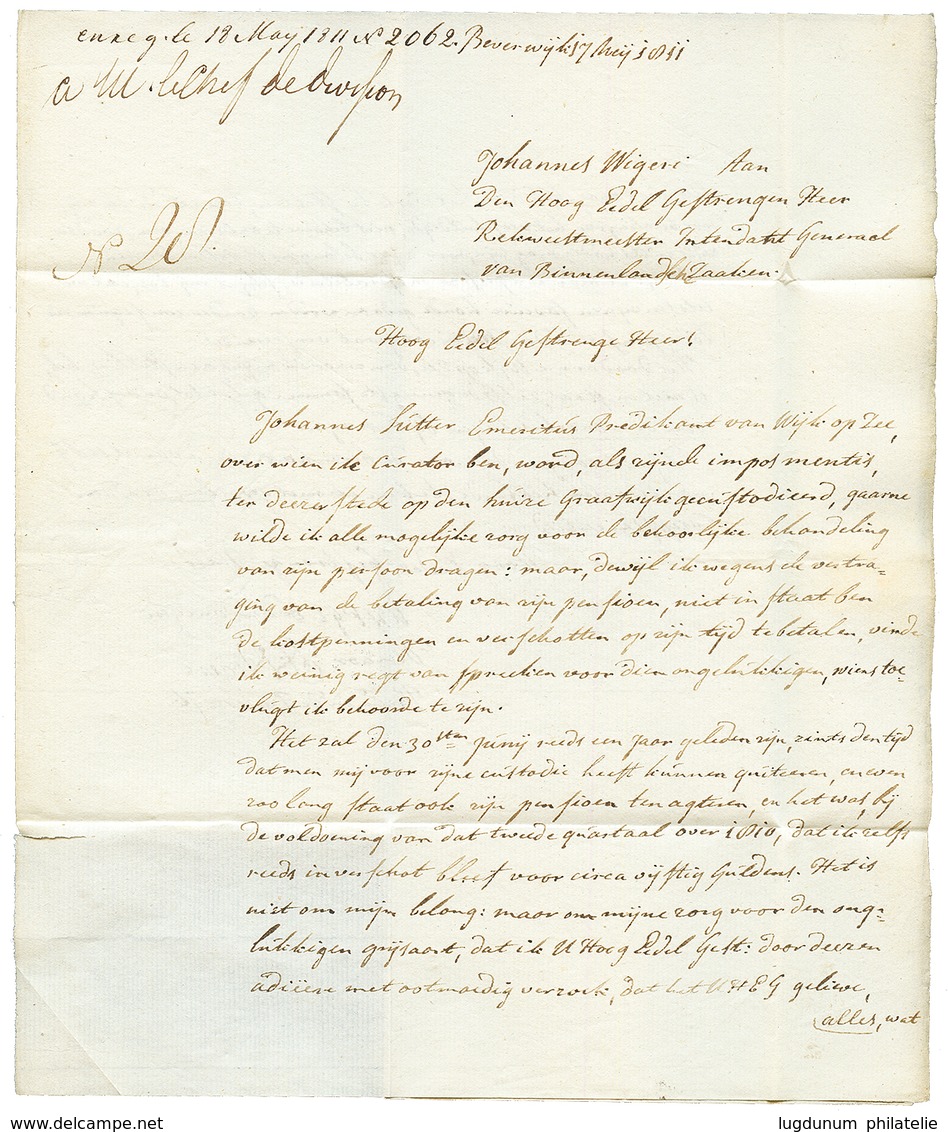 enreg. le 18 May 1811 N 2062. Beverwijk 17 Meij 1811
a M. le Chef de Division
Johannes Wigeri Aan
Den Hoog Edel Gestrengen Heer
Rekwestmeester Intendant Generaal
van Binnenlandsche Zaaken.
N 28.
Hoog Edel Gestrenge Heer!
Johannes Sutter Emeritus Predikant van Wijk op Zee,
over wien ik Curator ben, word, als zijnde impos mentis,
ter deezer stede op den huize Graafwijk gecustodieerd, gaarne
wilde ik alle mogelijke zorg voor de behoorlijke behandeling
van zijn persoon dragen: maar, dewijl ik wegens de vertra-
ging van de betaling van zijn pensioen, niet in staat ben
de kostpenningen en verschotten op zijn tijd te betalen, vinde
ik weinig regt van spreeken voor dien ongelukkigen, wiens toe-
vlugt ik behoorde te zijn.
Het zal den 30sten Junij reeds een Jaar geleden zijn, zints den tijd
dat men mij voor zijne custodie heeft kunnen quiteeren, en even
zoo lang staat ook zijn pensioen ten agteren, en het was, bij
de voldoening van dat tweede quartaal over 1810, dat ik zelfs
reeds in verschot bleef voor circa vijftig Guldens. Het is
niet om mijn belang: maar om mijne zorg voor den ong-
lukkigen grijsaart, dat ik U Hoog Edel Gest: door deezen
adiëere met ootmoedig verzoek, dat het U H E G gelieve,
alles, wat
www.delcampe.net
lugdunum philatelie